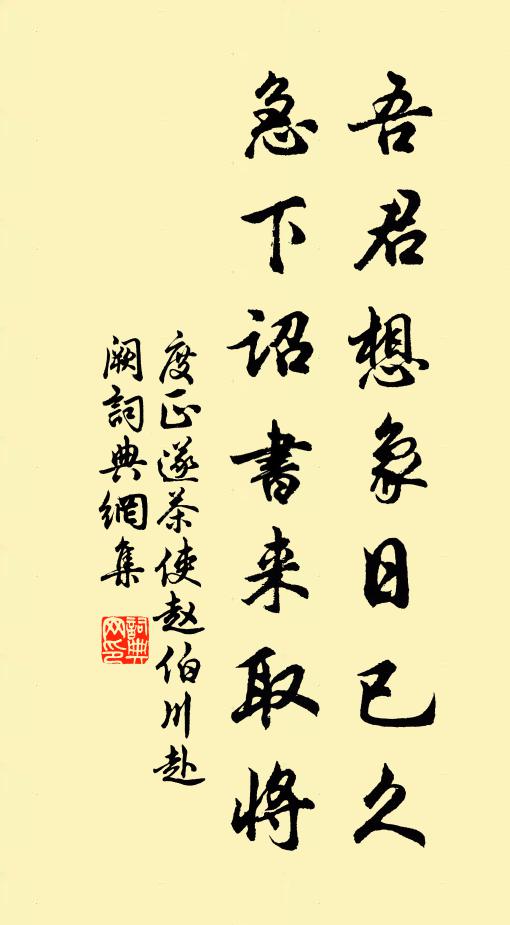 吾君想象日已久
急下詔書来取將
度正遂茶使赵伯川赴
闕詞典網集
詞典网印